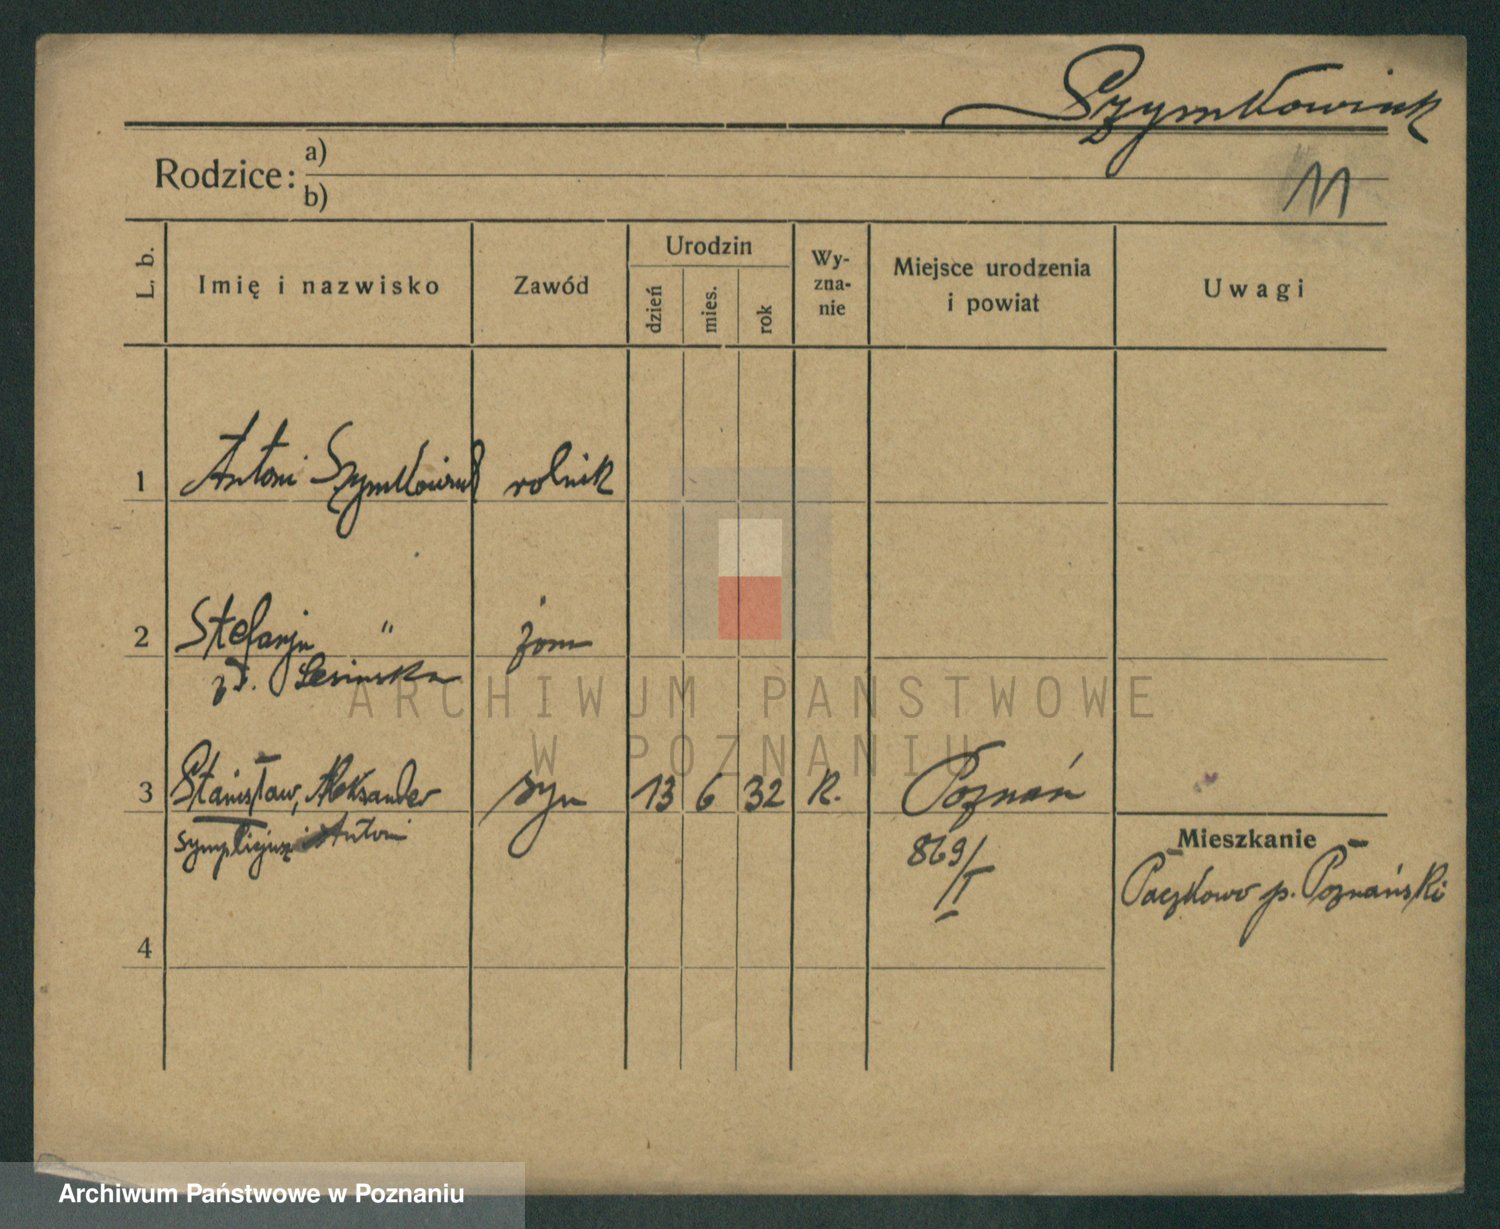 Szymkowiak
Rodzice:
a)
b)
11
L. b.
Imię i nazwisko
Zawód
Urodzin
dzień
mies.
rok
Wy-
zna-
nie
Miejsce urodzenia
i powiat
Uwagi
1 Antoni Szymkowiak rolnik
2 Stefanja " żona
z d. Lesinska
3 Stanisław, Aleksander syn 13 6 32 R. Poznań
Symplicjusz i Antoni
869/I
Mieszkanie
Paczkowo p. Poznański
4
ARCHIWUM PAŃSTWOWE
W POZNANIU
Archiwum Państwowe w Poznaniu